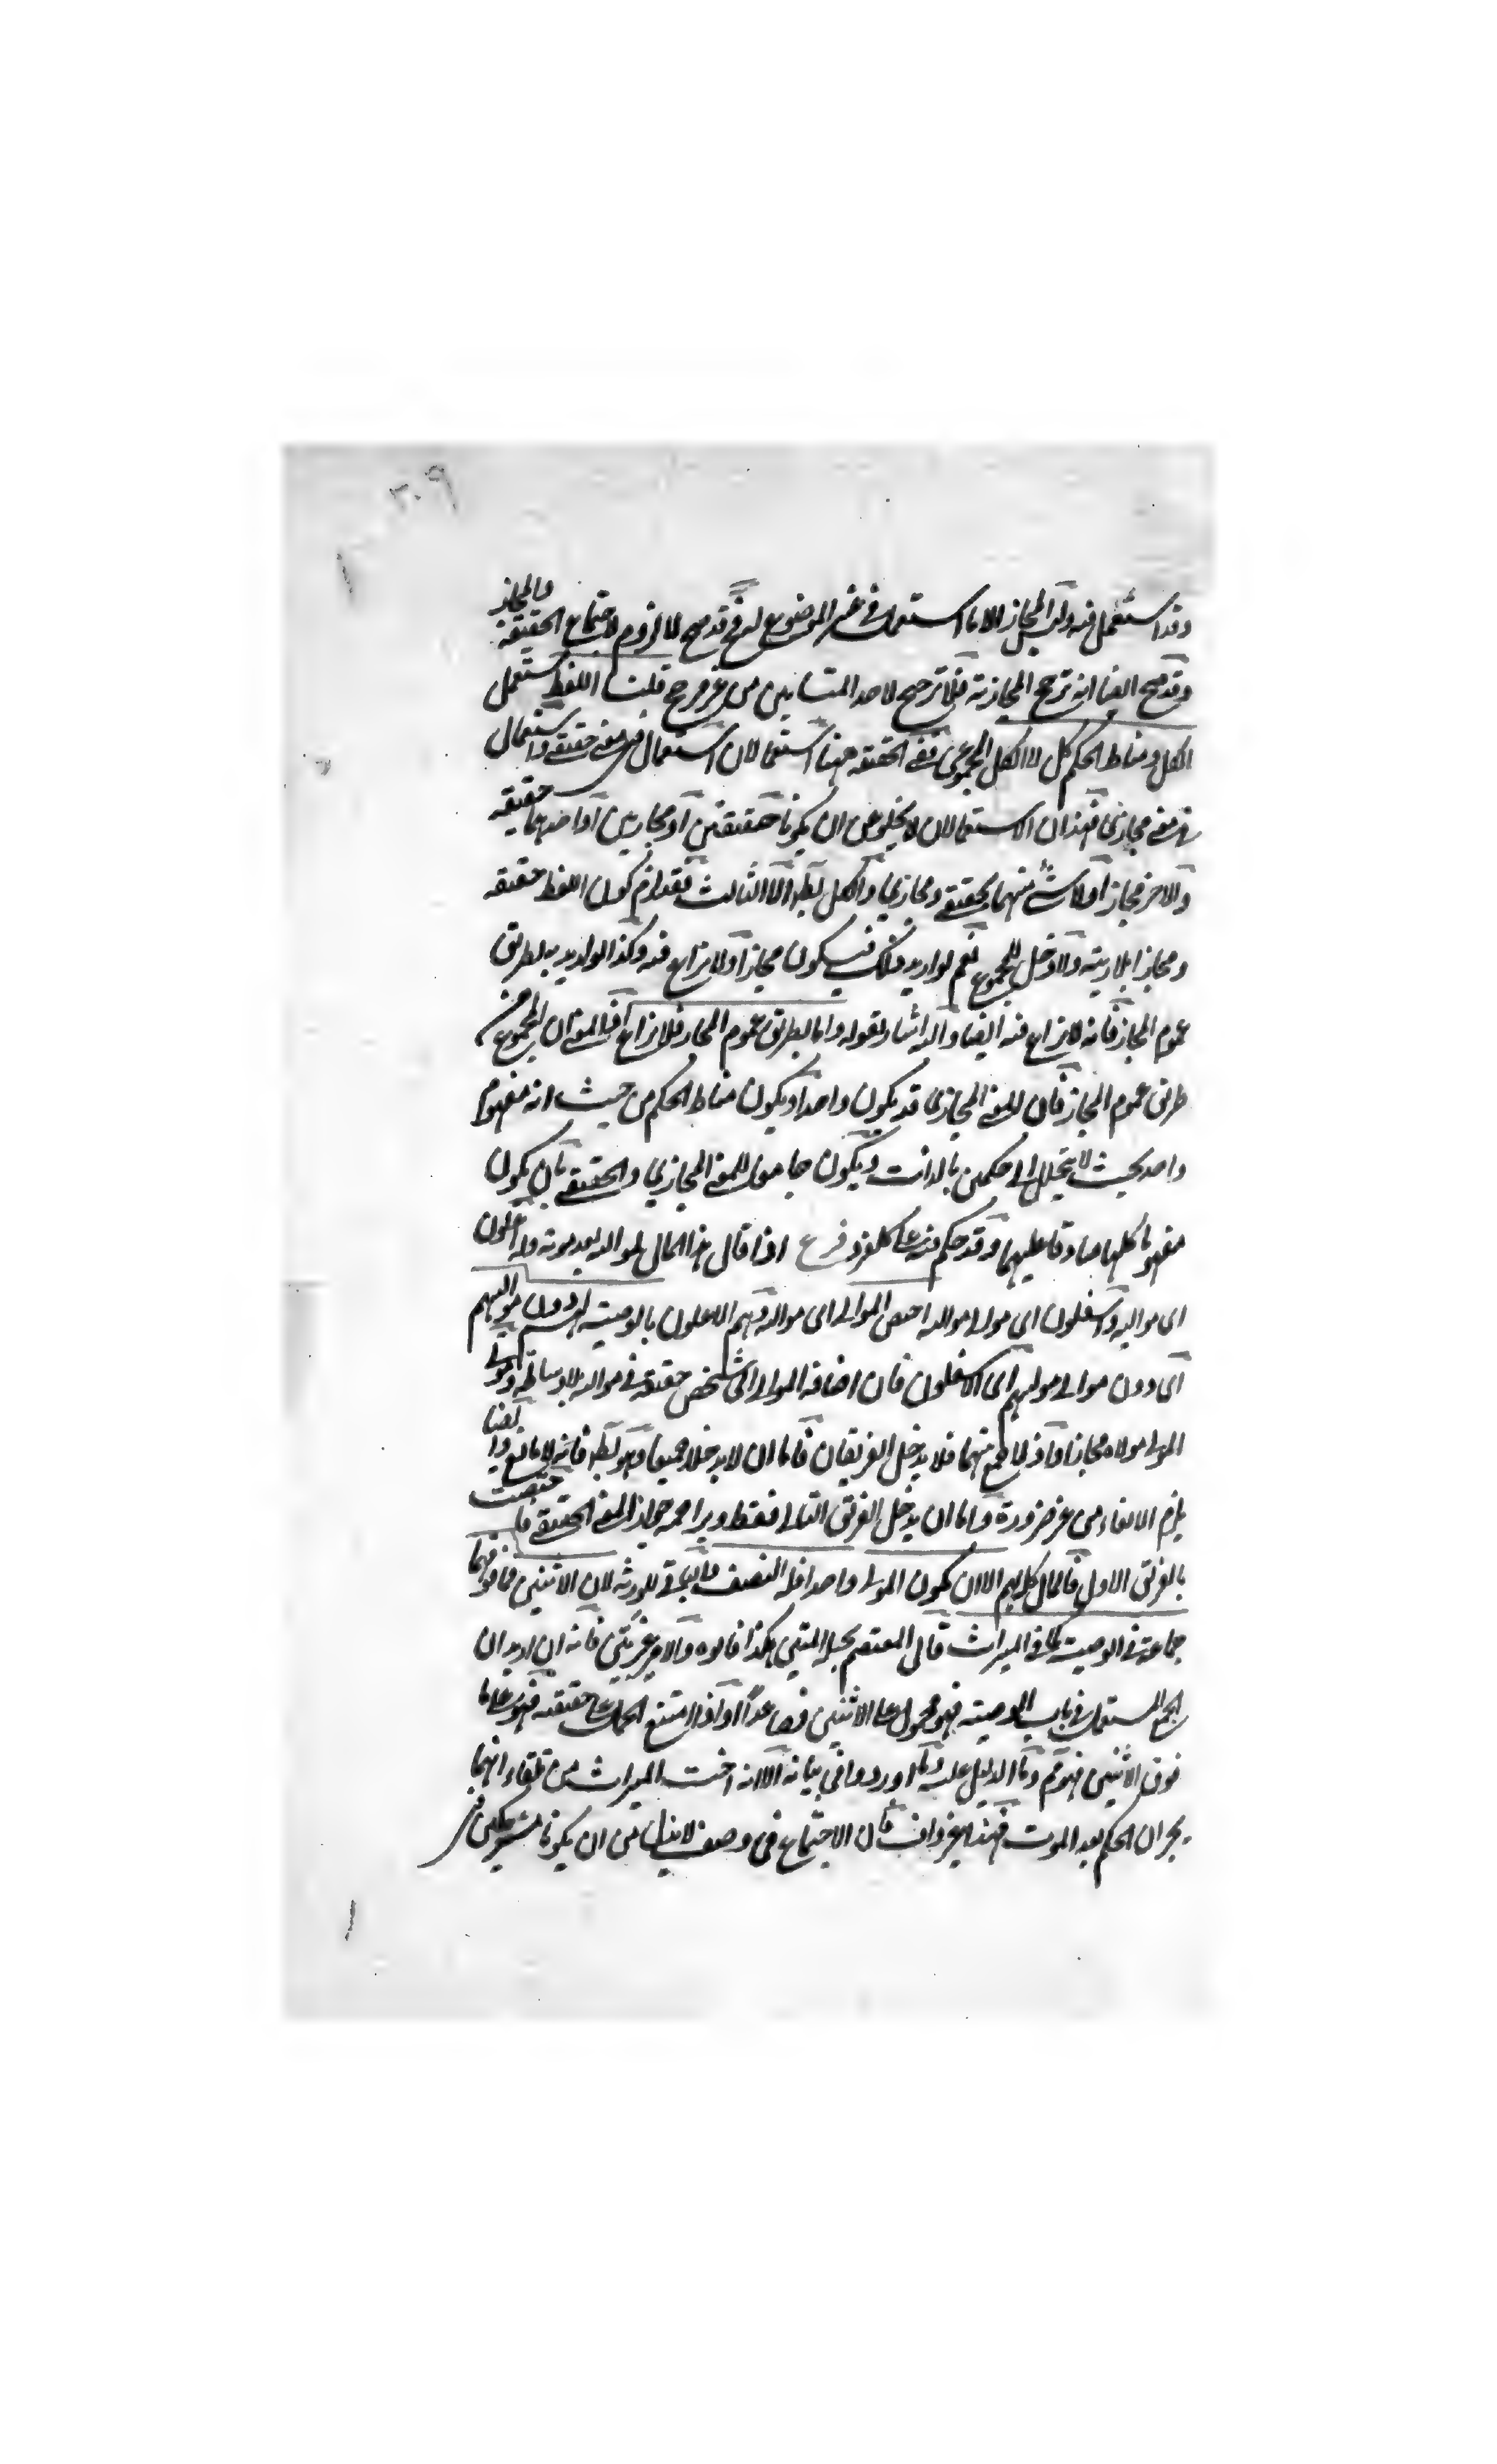 ٢٠٩
وقد استعمل فيه وليس المجاز الا ما استعمل في غير الموضوع له فح قد صح لا لزوم لاجتماع الحقيقة والمجاز
وقد صح ايضا انه ترجح المجازية فلا ترجيح لاحد المتساويين من غير مرجح قلت اللفظ مستعمل
الكل ومناط الحكم كل لا الكل المجموعي ففي الحقيقة ههنا استعمالان استعمال في معنى حقيقي واستعمال
في معنى مجازي فهذان الاستعمالان لا يخلو من ان يكونا حقيقتين او مجازين او احدهما حقيقة
والاخر مجاز او لا شئ منهما بحقيقي ومجازي والكل بط الا الثالث فقد لزم كون اللفظ حقيقة
ومجازا بلا ريبة ولا دخل للمجموع نعم لو اريد فيكون مجازا ولا نزاع فيه وكذا لو اريد به بطريق
عموم المجاز فانه لا نزاع فيه ايضا واليه اشار بقوله واما بطريق عموم المجاز فلا نزاع المجموع من
طريق عموم المجاز فان المعنى المجازي قد يكون واحدا ويكون مناط الحكم من حيث انه مفهوم
واحد بحيث لا يتحلل الى حكمين بالذات ويكون جامعا للمعنى المجازي والحقيقي بان يكون
مفهوما كليا صادقا عليهما وقد حكم فيه على كل فرد فرع اذا قال هذا المال لمواليه بعد موته وله اعلون
اي مواليه واسفلون اي موالى مواليه اختص الموالى اى مواليه وهم الاعلون بالوصية لهم دون مواليهم
اى دون موالى مواليهم اى الاسفلون فان اضافة الموالى الى شخص حقيقة في مواليه بلا وساطة وموالى
المولى مولاه مجازا واذ لا جمع منهما فلا يدخل الفريقان فاما ان لا يدخلا جميعا وهو بط فانه لا مانع وايضا
يلزم الالغاء من غير ضرورة واما ان يدخل الفريق الثاني فقط ويزاحمه جواز المعنى الحقيقي فاختصت
بالفريق الاول فالمال كله لهم الا ان يكون المولى واحدا فله النصف والباقي للورثة لان الاثنين فما فوقهما
جماعة في الوصية كما في الميراث قال المعتصم بحبله المتين هكذا قالوه والامر غير بين فانه ان اريد ان
الجمع المستعمل في باب الوصية فهو محمول على الاثنين فصاعدا او اذا امتنع الحمل على حقيقته فهو على ما
فوق الاثنين فهو مم وما الدليل عليه وما اوردوا في بيانه الا انه اخت الميراث من تلقاء انهما
يجريان الحكم بعد الموت فهذا غير واف فان الاجتماع في وصف لا يلزم من ان يكونا مشتركين في